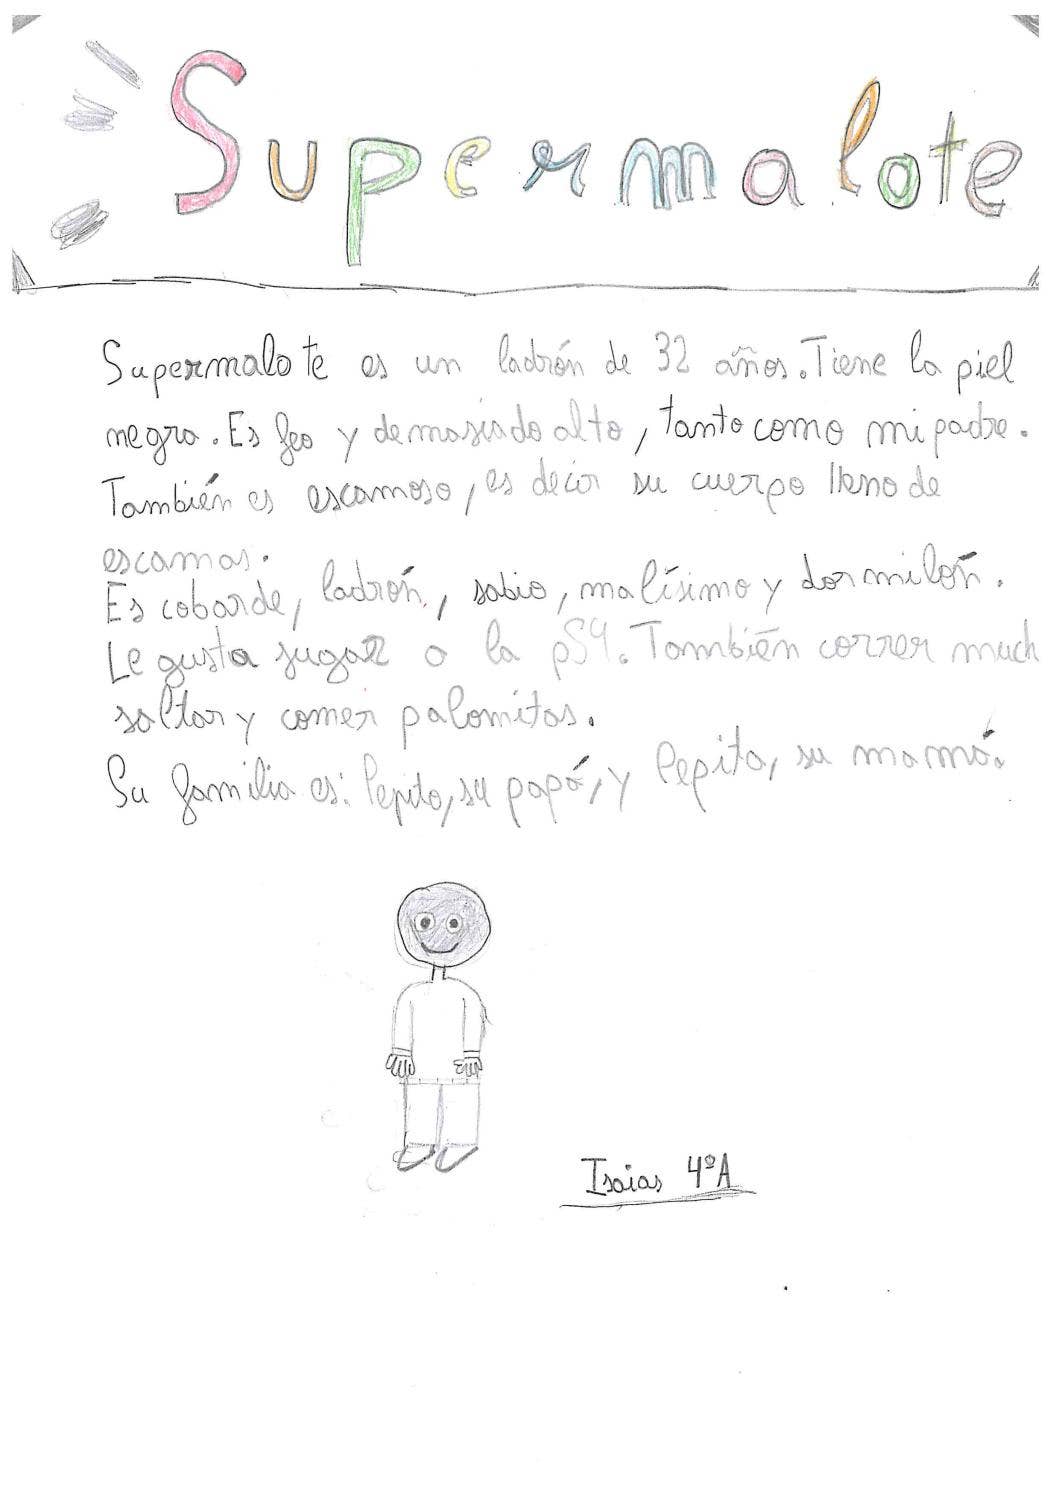 Supermalote
Supermalote es un ladrón de 32 años. Tiene la piel
negra. Es feo y demasiado alto, tanto como mi padre.
También es escamoso, es decir su cuerpo lleno de
escamas.
Es cobarde, ladrón, sabio, malísimo y dormilón.
Le gusta jugar a la pS4. También correr much
saltar y comer palomitas.
Su familia es: Pepito, su papá, y Pepita, su mamá.
Isaias 4ºA